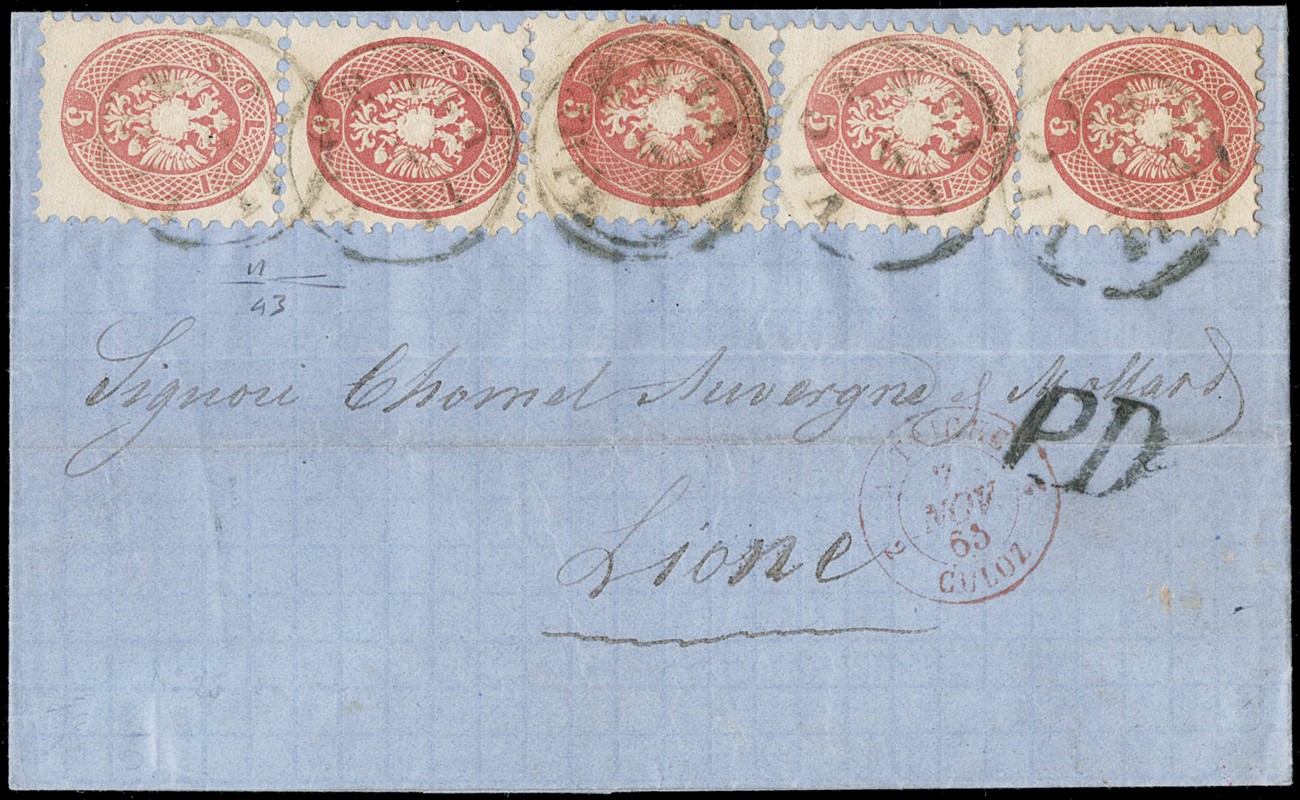 5 SOLDI
5 SOLDI
5 SOLDI
5 SOLDI
5 SOLDI
43
Signori Chomel Auvergne & Mollard
P.D.
2 AUTRICHE 2
7
NOV
63
CULOZ
Lione